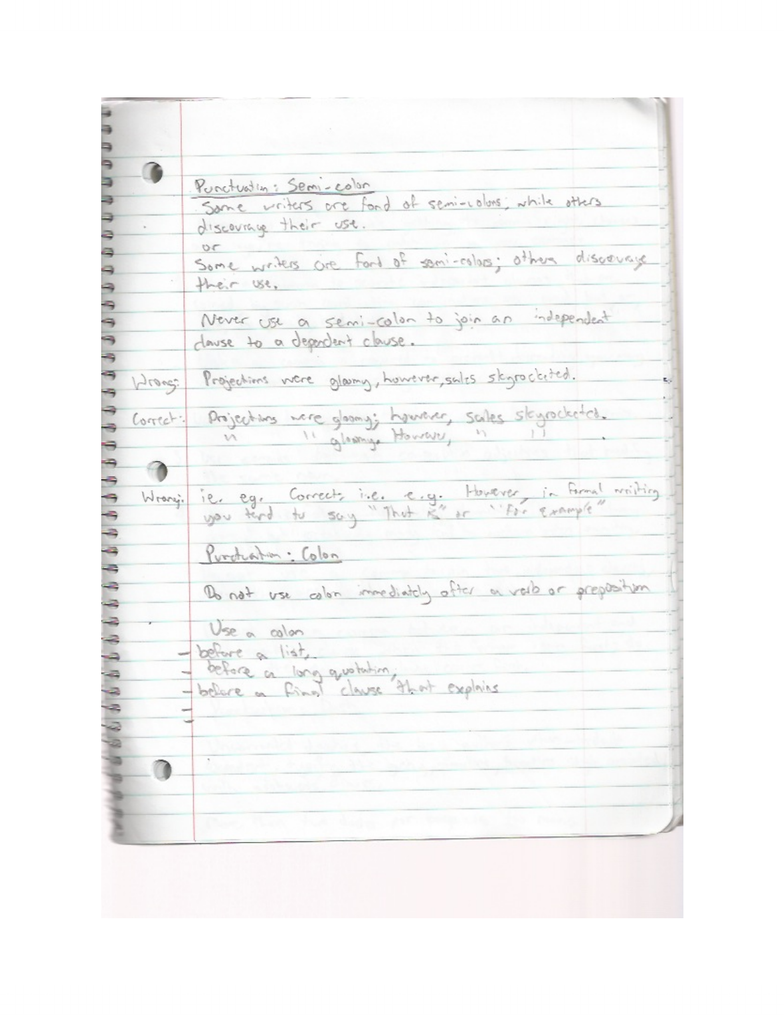 Punctuation: Semi-colon
Some writers are fond of semi-colons; while others
discourage their use.
or
Some writers are fond of semi-colons; others discourage
their use.
Never use a semi-colon to join an independent
clause to a dependent clause.
Wrong: Projections were gloomy, however, sales skyrocketed.
Correct: Projections were gloomy; however, sales skyrocketed.
" " gloomy. However, " " .
Wrong: ie. eg. Correct: i.e. e.g. However, in formal writing
you tend to say "That is" or "For example"
Punctuation: Colon
Do not use colon immediately after a verb or preposition
Use a colon
- before a list,
before a long quotation,
- before a final clause that explains
-
-